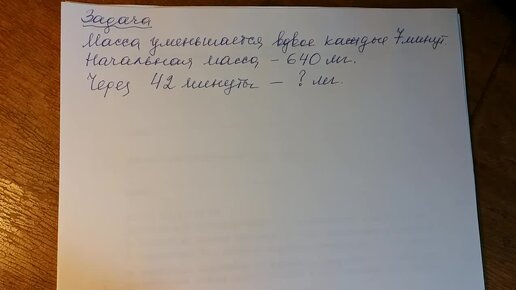 Задача
Масса уменьшается вдвое каждые 7 минут
Начальная масса – 640 мг.
Через 42 минуты – ? мг.